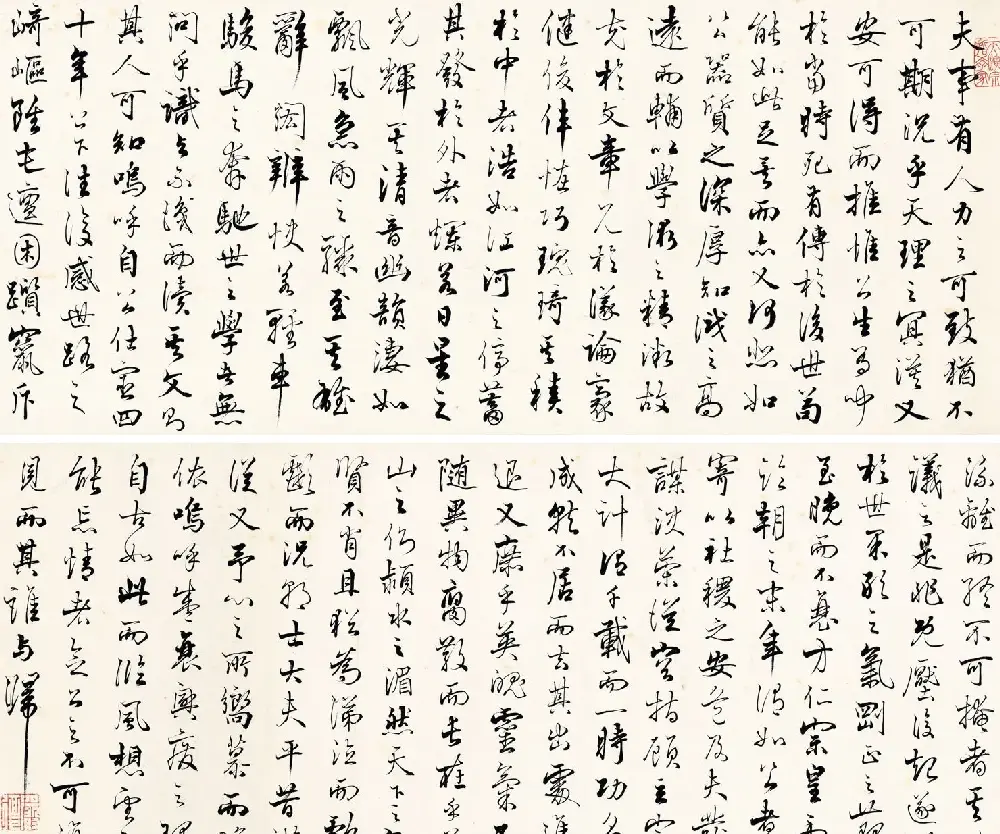 夫事有人力之可致猶不
可期況乎天理之冥漠又
安可得而推惟公生有聞
於當時死有傳於後世苟
能如此足矣而亦又何悲如
公器質之深厚知識之高
遠而輔以學術之精微故
充於文章見於議論豪
健俊偉怪巧瑰琦其積
於中者浩如江河之停蓄
其發於外者爛若日星之
光輝其清音幽韻淒如
飄風急雨之驟至其雄
辭閎辨快若輕車
駿馬之奔馳世之學者無
問乎識與不識而讀其文則
其人可知嗚呼自公仕宦四
十年上下往復感世路之
崎嶇雖屯邅困躓竄斥
流離而終不可掩者其
議之是非既壓復起遂
於世果敢之氣剛正之
至晚而不衰方仁宗皇
臨朝之末年謂如公者
寄以社稷之安危及夫發
謀決策從容指顧立
大計謂千載而一時功名
成就不居而去其出處進
退又庶乎英魄靈氣不
隨異物腐散而長在乎
山之側潁水之湄然天下之
賢不肖且猶為涕泣而歔
而況朝士大夫平昔遊
從又予心之所嚮慕而
依嗚呼盛衰興廢之理
自古如此而臨風想望
能忘情者念公之不可
見而其誰與歸